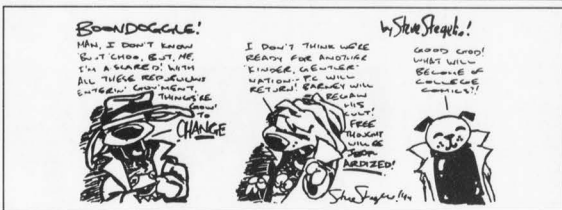 BOONDOGGLE!
by Steve Stegelin!
MAN, I DON'T KNOW
'BOUT 'CHOO, BUT, ME,
I'M A SCARED! WITH
ALL THESE REPUBLICANS
ENTERIN' GOV'MENT,
THINGS'RE
GOIN'
TO
CHANGE
I DON'T THINK WE'RE
READY FOR ANOTHER
"KINDER, GENTLER"
NATION-- P.C. WILL
RETURN! BARNEY WILL
REGAIN
HIS
CULT!
FREE
THOUGHT
WILL BE
JEOP
ARDIZED!
Steve Stegelin '94
GOOD GOD!
WHAT WILL
BECOME OF
COLLEGE
COMICS?!